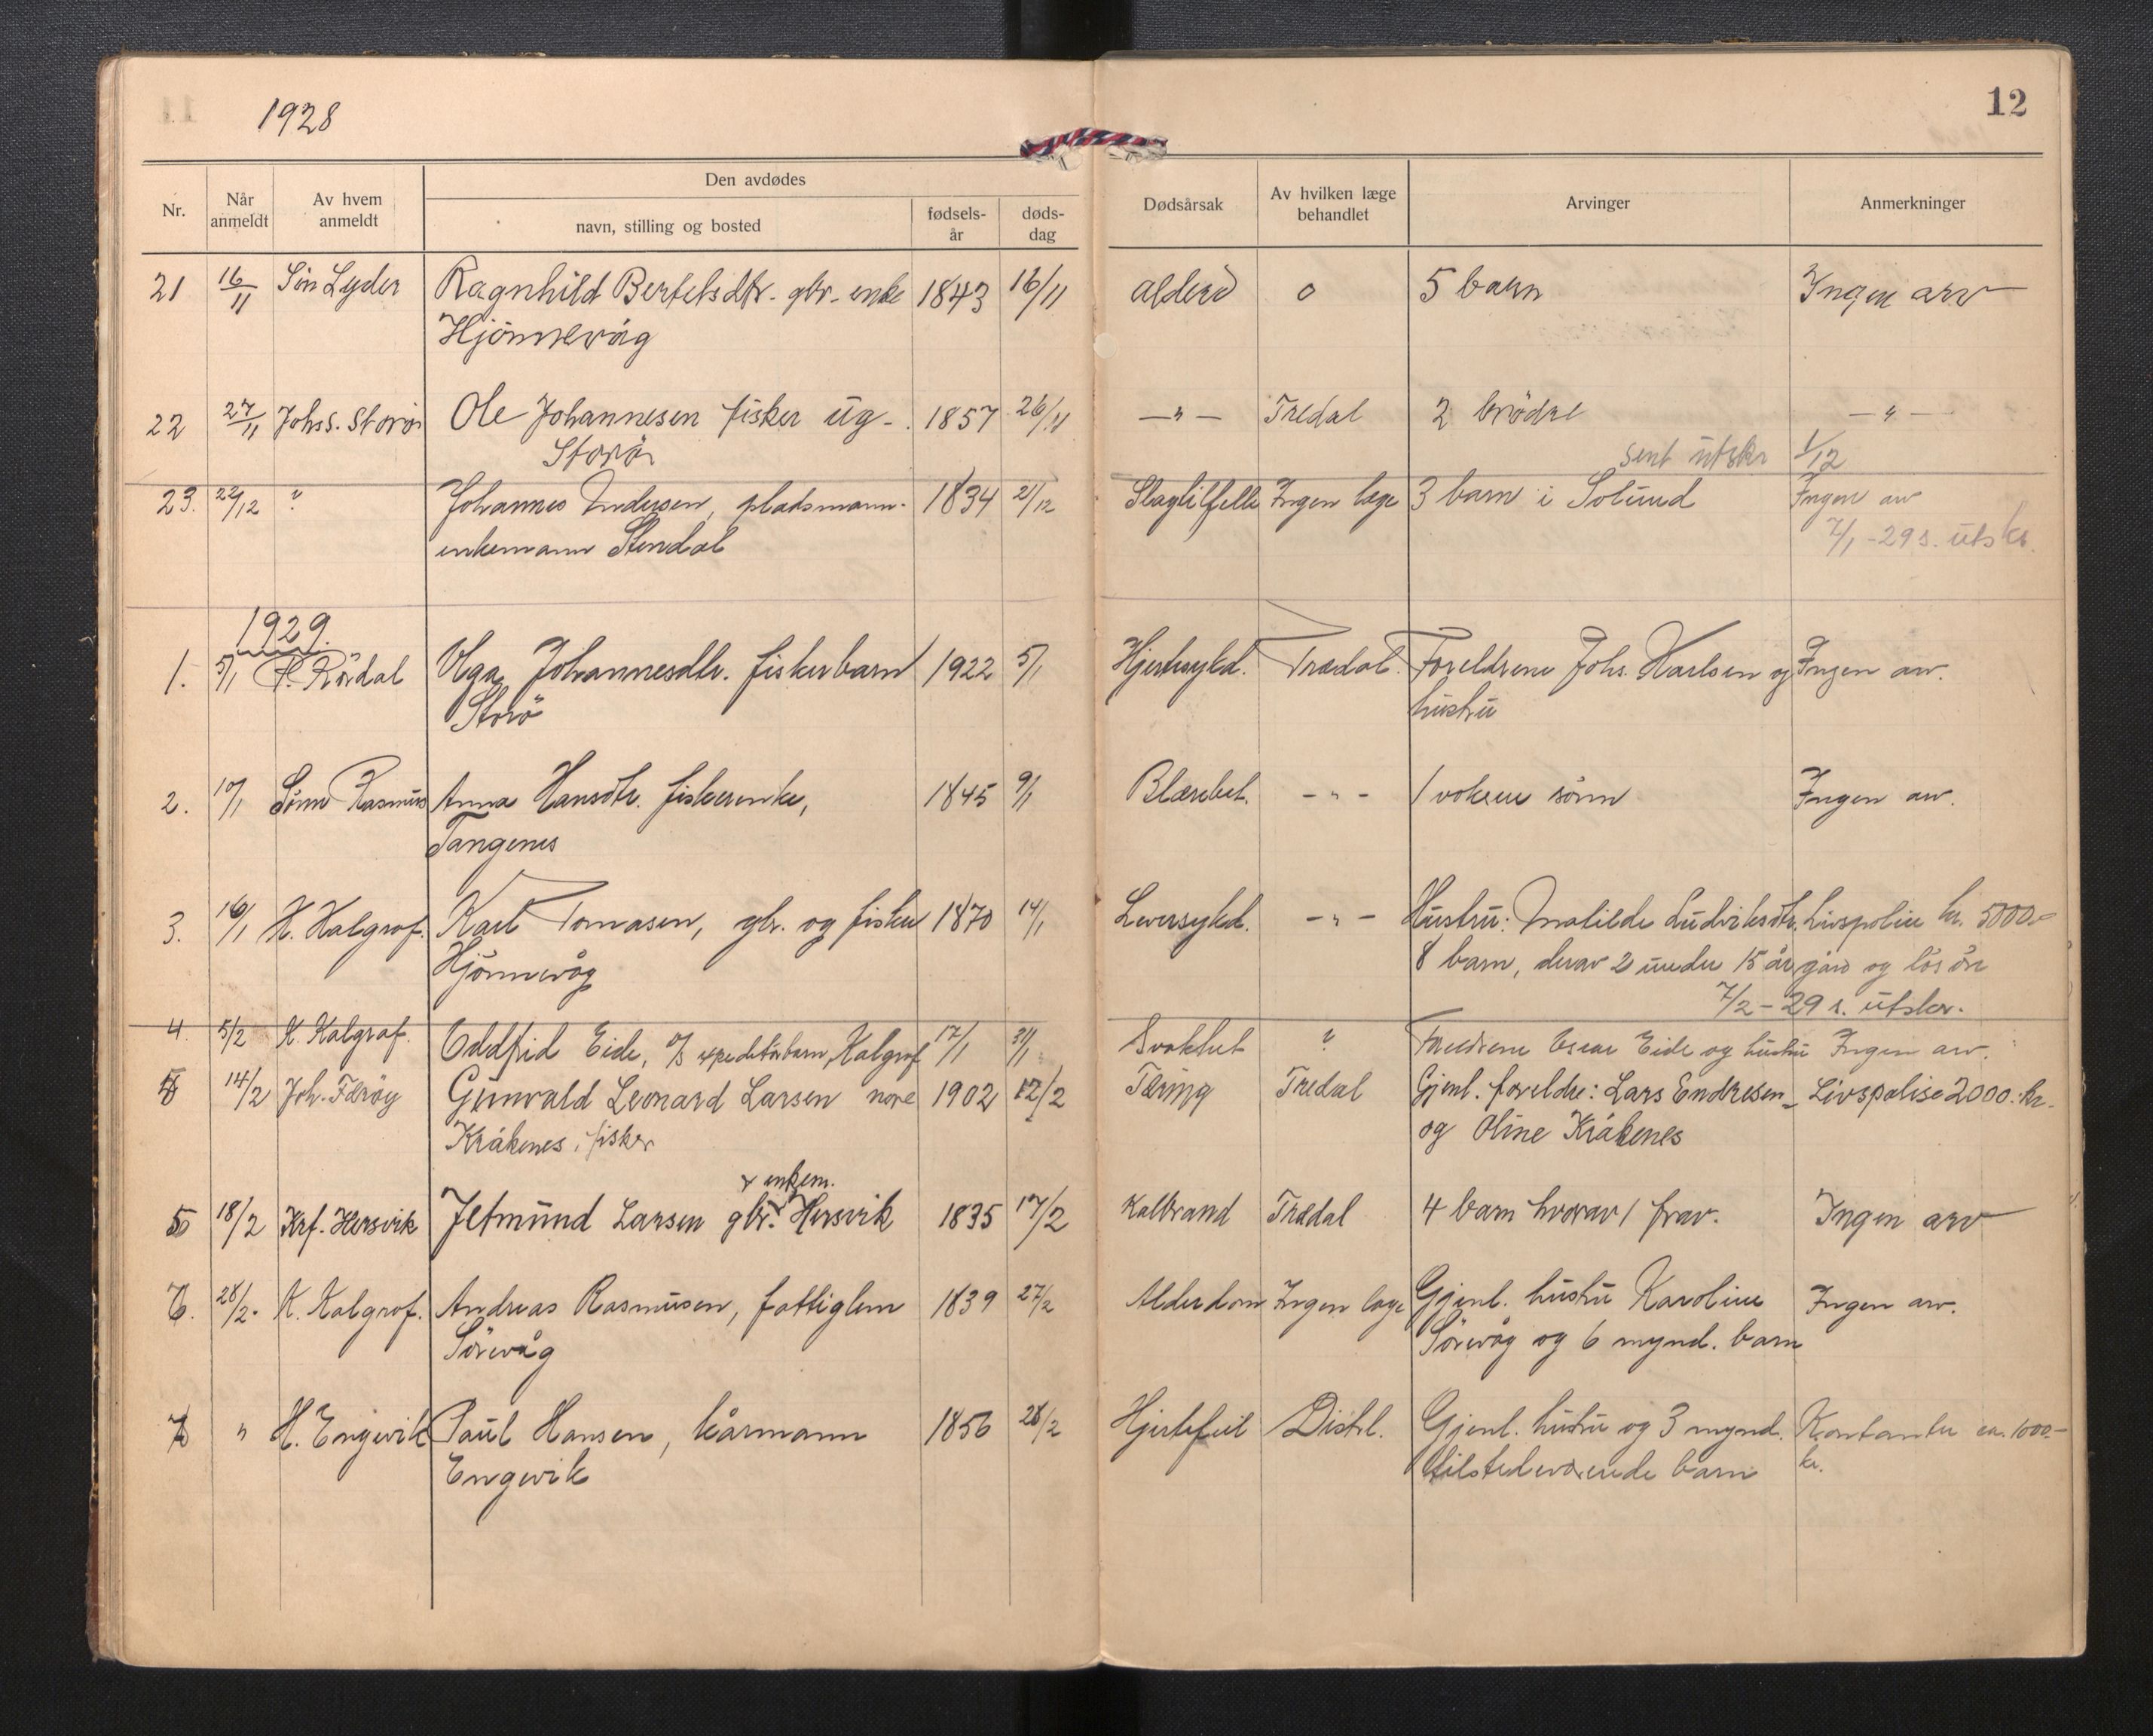 1928
12
Nr. Når anmeldt Av hvem anmeldt Den avdødes navn, stilling og bosted fødsels-år døds-dag Dødsårsak Av hvilken læge behandlet Arvinger Anmerkninger
21 16/11 Sön Lyder Ragnhild Bertelsdtr. gbr. enke 1843 16/11 alderd 0 5 barn Ingen arv
Hjönnevåg
22 27/11 Johs S. Storö Ole Johannesen fisker ug. 1857 26/11 —"— Tredal 2 brödre —"—
Storö sent utskr 1/12
23. 22/12 ? Johannes Andersen, pladsmann. 1834 21/12 Slagtilfelle Ingen læge 3 barn i Solund Ingen arv
enkemann Stendal 7/1-29 s. utskr.
1929.
1. 5/1 P. Rördal Olga Johannesdtr. fiskerbarn 1922 5/1 Hjertesykd. Trædal. Foreldrene Johs. Karlsen og Ingen arv.
Storö hustru
2. 10/1 Sönn Rasmus Anna Hansdtr. fiskerenke, 1845 9/1 Blærebet. -"- 1 voksen sönn Ingen arv.
Tangenes
3. 16/1 K. Kalgraf. Karl Tomasen, gbr. og fisker 1870 14/1 Leversykd. -"- Hustru: Matilde Ludviksdtr. Livspolise kr. 5000.-
Hjönnevåg 8 barn, derav 2 under 15 år gård og lösöre
7/2-29 s. utskr.
4 5/2 K. Kalgraf. Oddfrid Eide, d/s expeditörbarn, Kalgraf 17/1 31/1 Svakhet ? Foreldrene Oscar Eide og hustru Ingen arv.
14/2 Joh. Færöy Gunvald Leonard Larsen nore 1902 12/2 Tæring Tredal Gjenl. foreldre: Lars Endresen Livspolise 2000.kr.
Kråkenes, fisker og Oline Kråkenes
& enkem.
5 18/2 Krf. Hersvik Jetmund Larsen gbr. Hersvik 1835 17/2 Kalbrand Trædal 4 barn hvorav 1 frav. Ingen arv
6. 28/2. K. Kalgraf. Andreas Rasmusen, fattiglem 1839 27/2 Alderdom Ingen læge Gjenl. hustru Karoline Ingen arv.
Sörevåg Sörevåg og 6 mynd. barn
7 " H. Engevik Paul Hansen, kårmann 1856 28/2 Hjertefeil Distrl. Gjenl. hustru og 3 mynd. Kontanter ca. 1000.-
Engevik tilstedeværende barn kr.